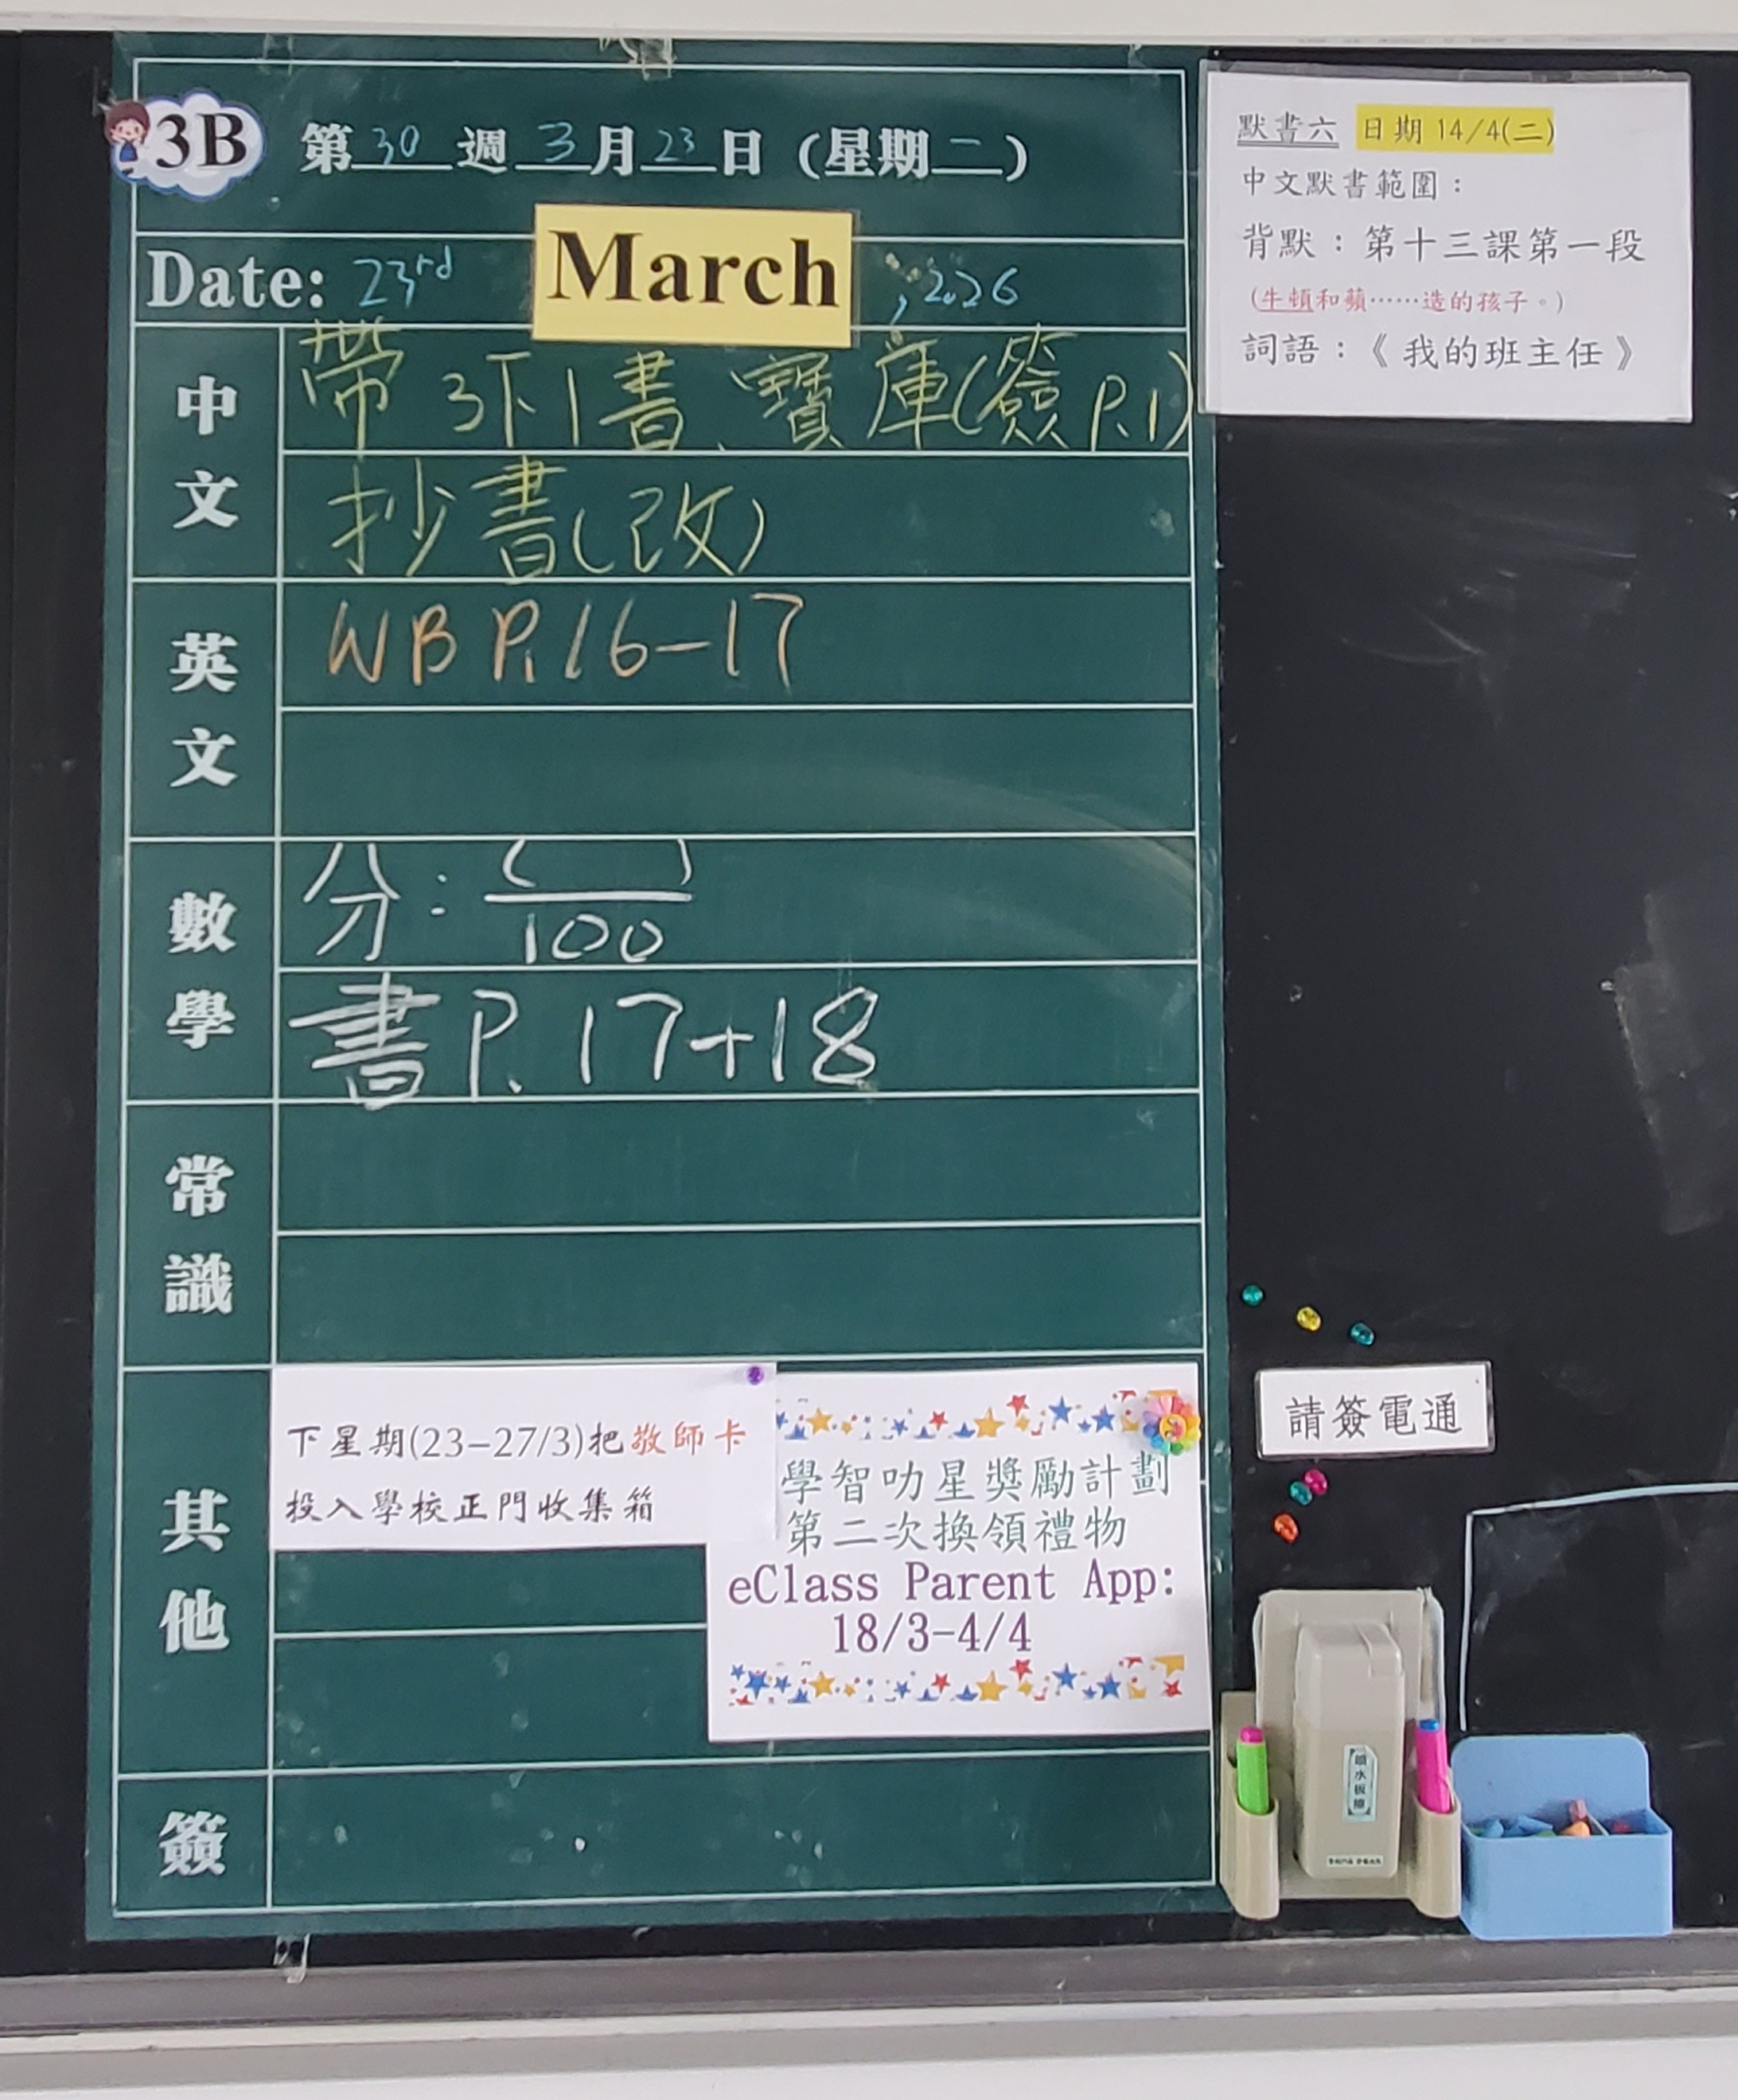 3B 第30週3月23日(星期一)
Date: 23rd March, 2026
中文
帶3下1書、寶庫(簽P.1)
抄書(改)
英文
WB P.16-17
數學
分: ( )/100
書P.17+18
常識
其他
下星期(23-27/3)把敬師卡
投入學校正門收集箱
學智叻星獎勵計劃
第二次換領禮物
eClass Parent App:
18/3-4/4
簽
默書六 日期14/4(二)
中文默書範圍:
背默:第十三課第一段
(牛頓和蘋……造的孩子。)
詞語:《我的班主任》
請簽電通